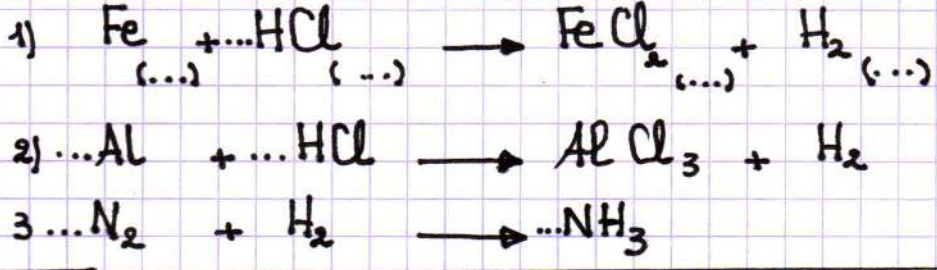 1) Fe (...) + ...HCl (...) → FeCl₂ (...) + H₂ (...)
2) ...Al + ...HCl → AlCl₃ + H₂
3 ...N₂ + H₂ → ...NH₃